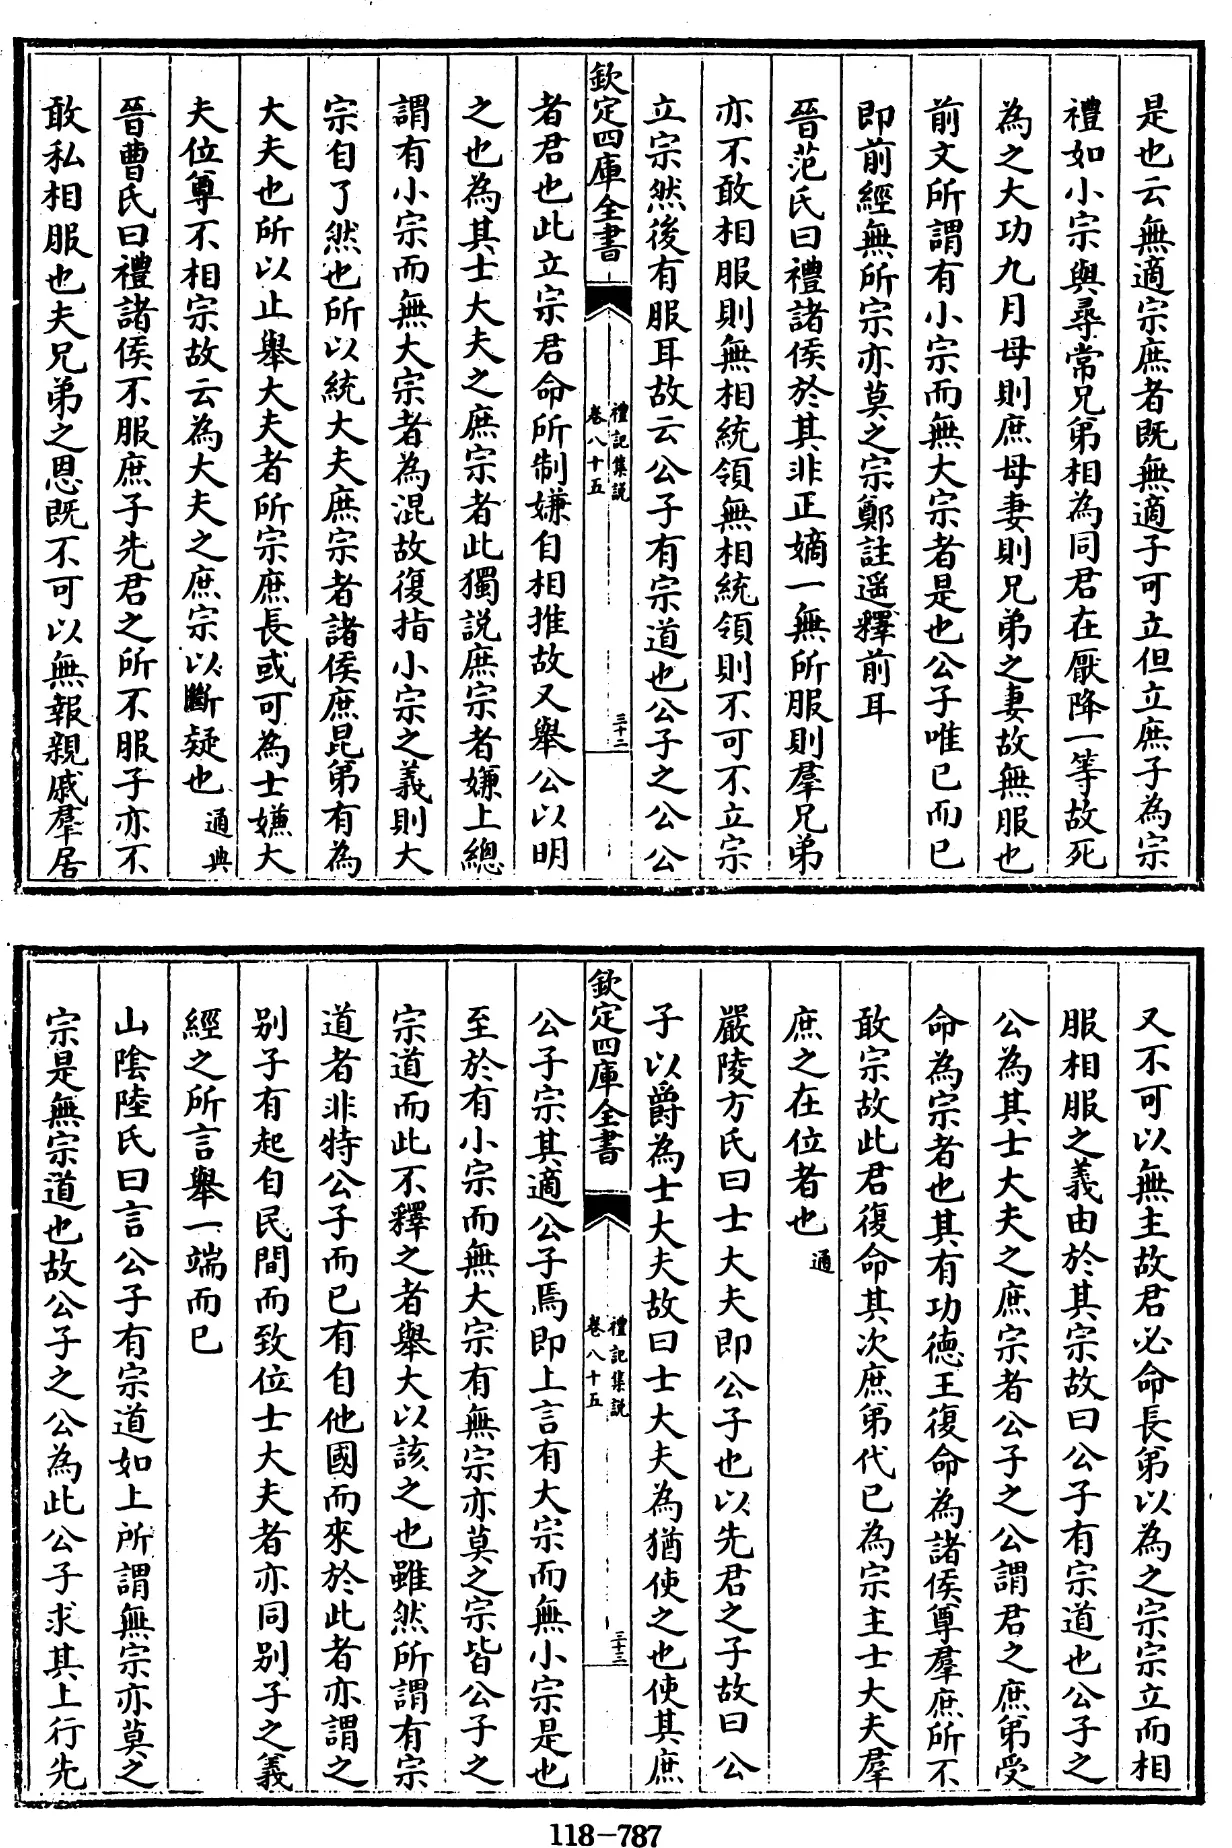 是也云無適宗庶者既無適子可立但立庶子為宗
禮如小宗與尋常兄弟相為同君在厭降一等故死
為之大功九月母則庶母妻則兄弟之妻故無服也
前文所謂有小宗而無大宗者是也公子唯已而已
即前經無所宗亦莫之宗鄭註遥釋前耳
晉范氏曰禮諸侯於其非正嫡一無所服則羣兄弟
亦不敢相服則無相統領無相統領則不可不立宗
立宗然後有服耳故云公子有宗道也公子之公公
欽定四庫全書
禮記集説
卷八十五
三十二
者君也此立宗君命所制嫌自相推故又舉公以明
之也為其士大夫之庶宗者此獨説庶宗者嫌上總
謂有小宗而無大宗者為混故復指小宗之義則大
宗自了然也所以統大夫庶宗者諸侯庶昆弟有為
大夫也所以止舉大夫者所宗庶長或可為士嫌大
夫位尊不相宗故云為大夫之庶宗以斷疑也通典
晉曹氏曰禮諸侯不服庶子先君之所不服子亦不
敢私相服也夫兄弟之恩既不可以無報親戚羣居
又不可以無主故君必命長弟以為之宗宗立而相
服相服之義由於其宗故曰公子有宗道也公子之
公為其士大夫之庶宗者公子之公謂君之庶弟受
命為宗者也其有功德王復命為諸侯尊羣庶所不
敢宗故此君復命其次庶弟代已為宗主士大夫羣
庶之在位者也通
嚴陵方氏曰士大夫即公子也以先君之子故曰公
子以爵為士大夫故曰士大夫為猶使之也使其庶
欽定四庫全書
禮記集説
卷八十五
三十三
公子宗其適公子焉即上言有大宗而無小宗是也
至於有小宗而無大宗有無宗亦莫之宗皆公子之
宗道而此不釋之者舉大以該之也雖然所謂有宗
道者非特公子而已有自他國而來於此者亦謂之
别子有起自民間而致位士大夫者亦同别子之義
經之所言舉一端而已
山陰陸氏曰言公子有宗道如上所謂無宗亦莫之
宗是無宗道也故公子之公為此公子求其上行先
118-787